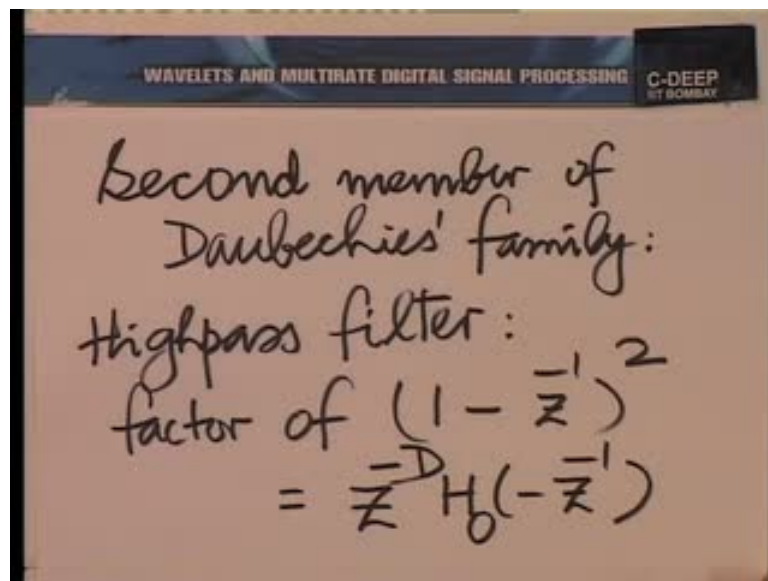 WAVELETS AND MULTIRATE DIGITAL SIGNAL PROCESSING
C-DEEP
IIT BOMBAY
Second member of
Daubechies' family:
Highpass filter:
factor of (1 - z⁻¹)²
= z⁻ᴰ H₀(-z⁻¹)